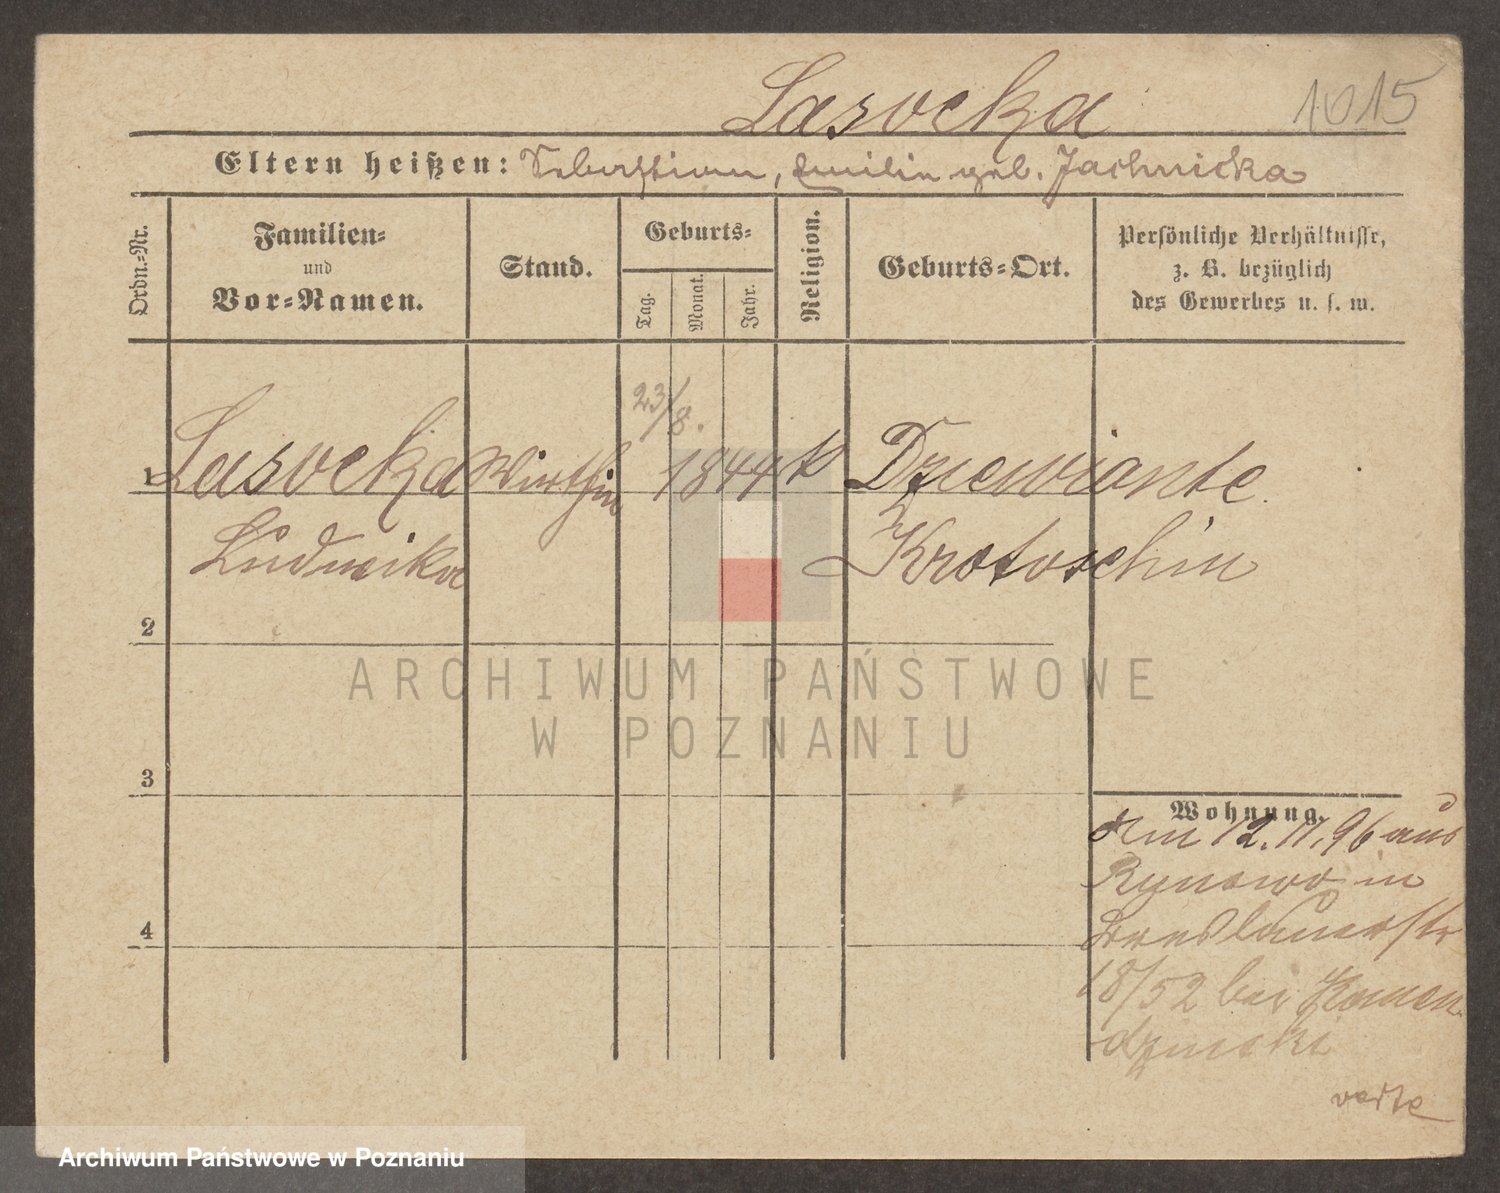 Lasocka 1015
Eltern heißen: Sebastian, Emilie geb. Jachnicka
Ordn.-Nr.
Familien-
und
Vor-Namen.
Stand.
Geburts-
Tag.
Monat.
Jahr.
Religion.
Geburts-Ort.
Persönliche Verhältnisse,
z. B. bezüglich
des Gewerbes u. s. w.
23/8.
1 Lasocka Wirthin 1844 k Drzewiante
Ludwika Krotoschin
2
ARCHIWUM PAŃSTWOWE
W POZNANIU
3
Wohnung.
Am 12.11.96 aus
in
4 Breslauerstr
18/52 bei
verte
Archiwum Państwowe w Poznaniu